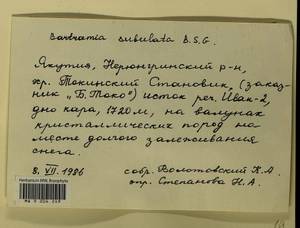 Bartramia subulata B.S.G.
Якутия, Нерюнгринский р-н,
хр. Токинский Становик, (заказ-
ник "Б. Токо") исток реч. Ивак-2,
дно кара, 1720 м, на валунах
кристаллических пород на
месте долгого залеживания
снега.
8. VII. 1986
собр. Волотовский К.А.
опр. Степанова Н.А.